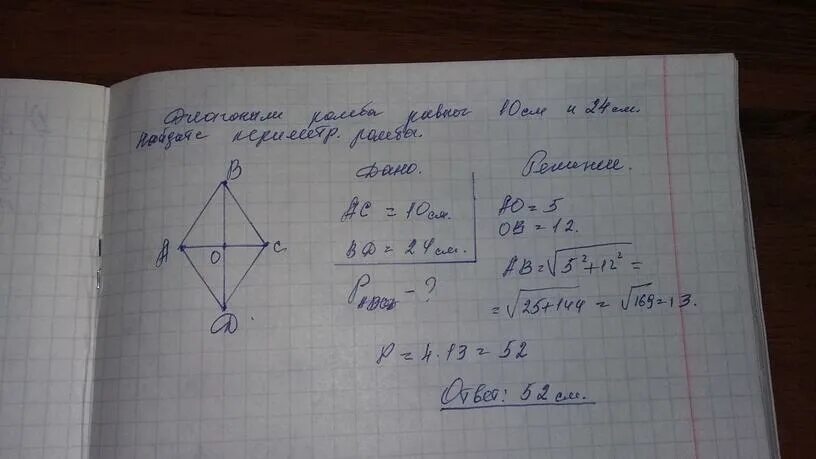 Диагонали ромба равны 10см и 24см.
Найдите периметр ромба.
B
A
O
C
D
Дано.
AC = 10см.
BD = 24см.
P ABCD - ?
Решение.
AO = 5
OB = 12.
AB = √5² + 12² =
= √25 + 144 = √169 = 13.
P = 4 · 13 = 52
Ответ: 52 см.